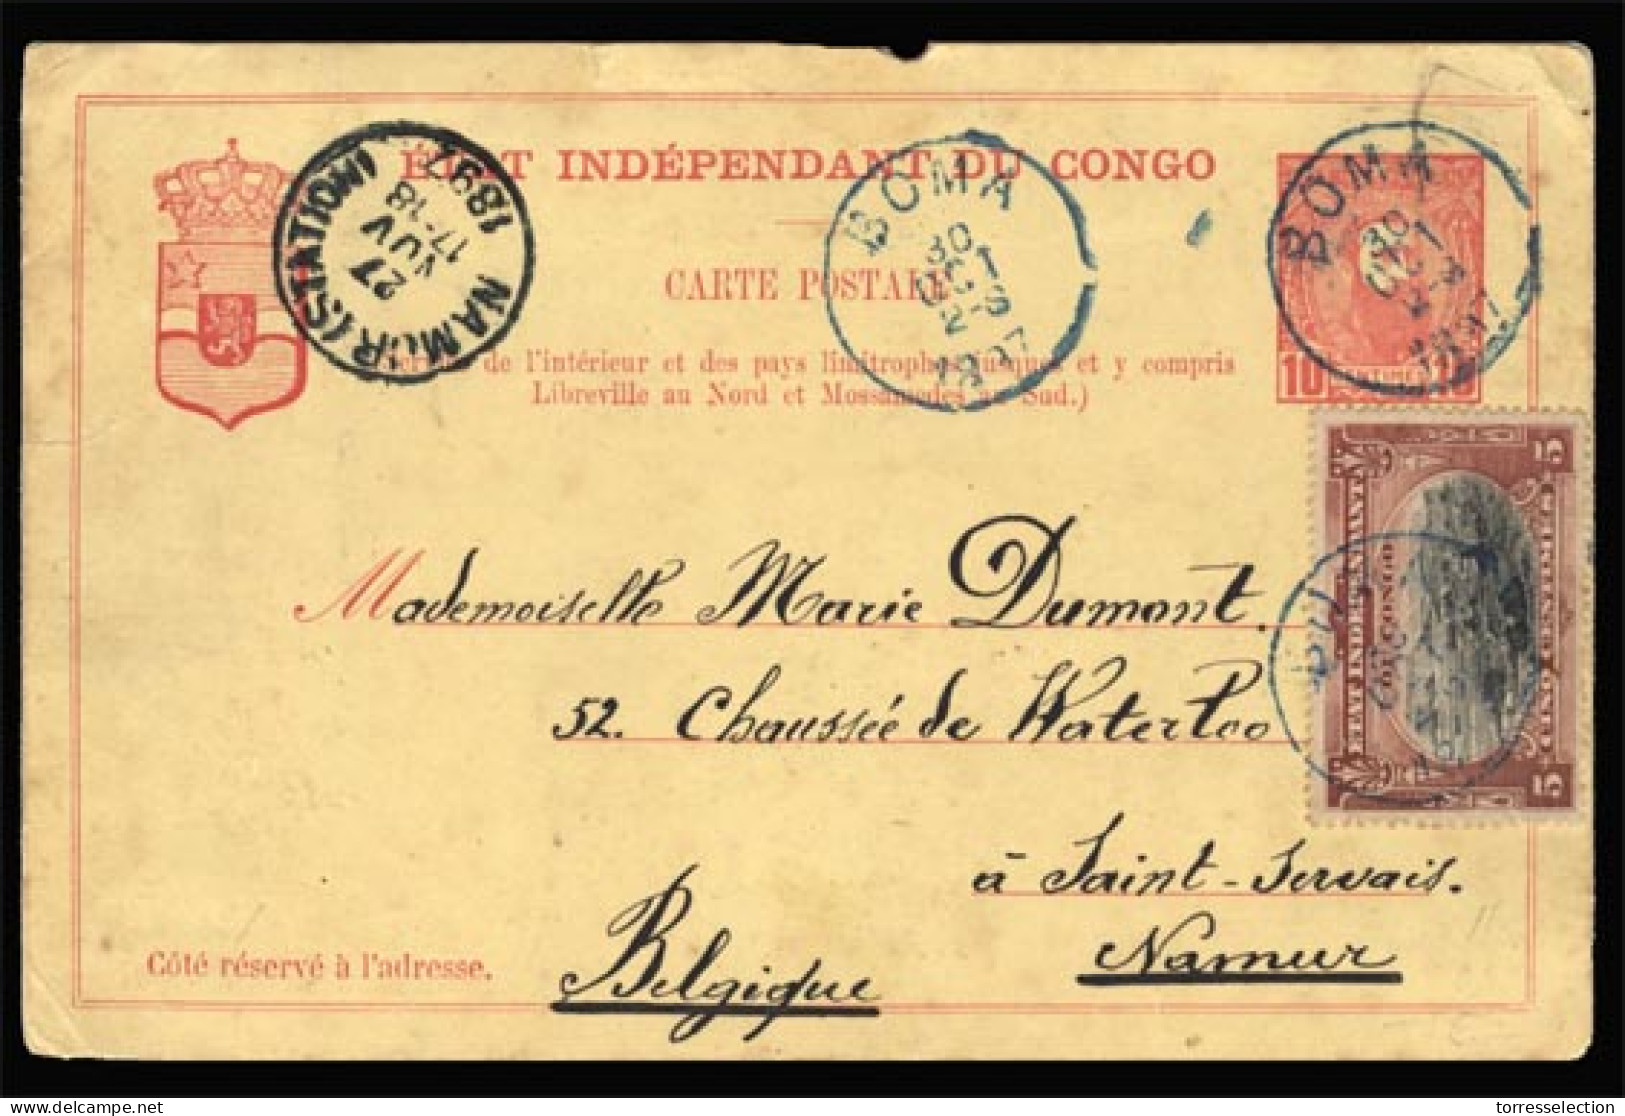 ÉTAT INDÉPENDANT DU CONGO
CARTE POSTALE
de l'intérieur et des pays limitrophes jusques et y compris
Libreville au Nord et Mossamédès au Sud.)
NAMUR (STATION)
1897
17-18
27
BOMA
30
OCT
2-S
1897
BOMA
30
OCT
2-S
1897
10
CENTIMES
ÉTAT INDÉPENDANT
DU CONGO
5
CINQ CENTIMES
5
Mademoiselle Marie Dumont.
52. Chaussée de Waterloo
à Saint-Servais.
Namur
Belgique
Côté réservé à l'adresse.
torresselection